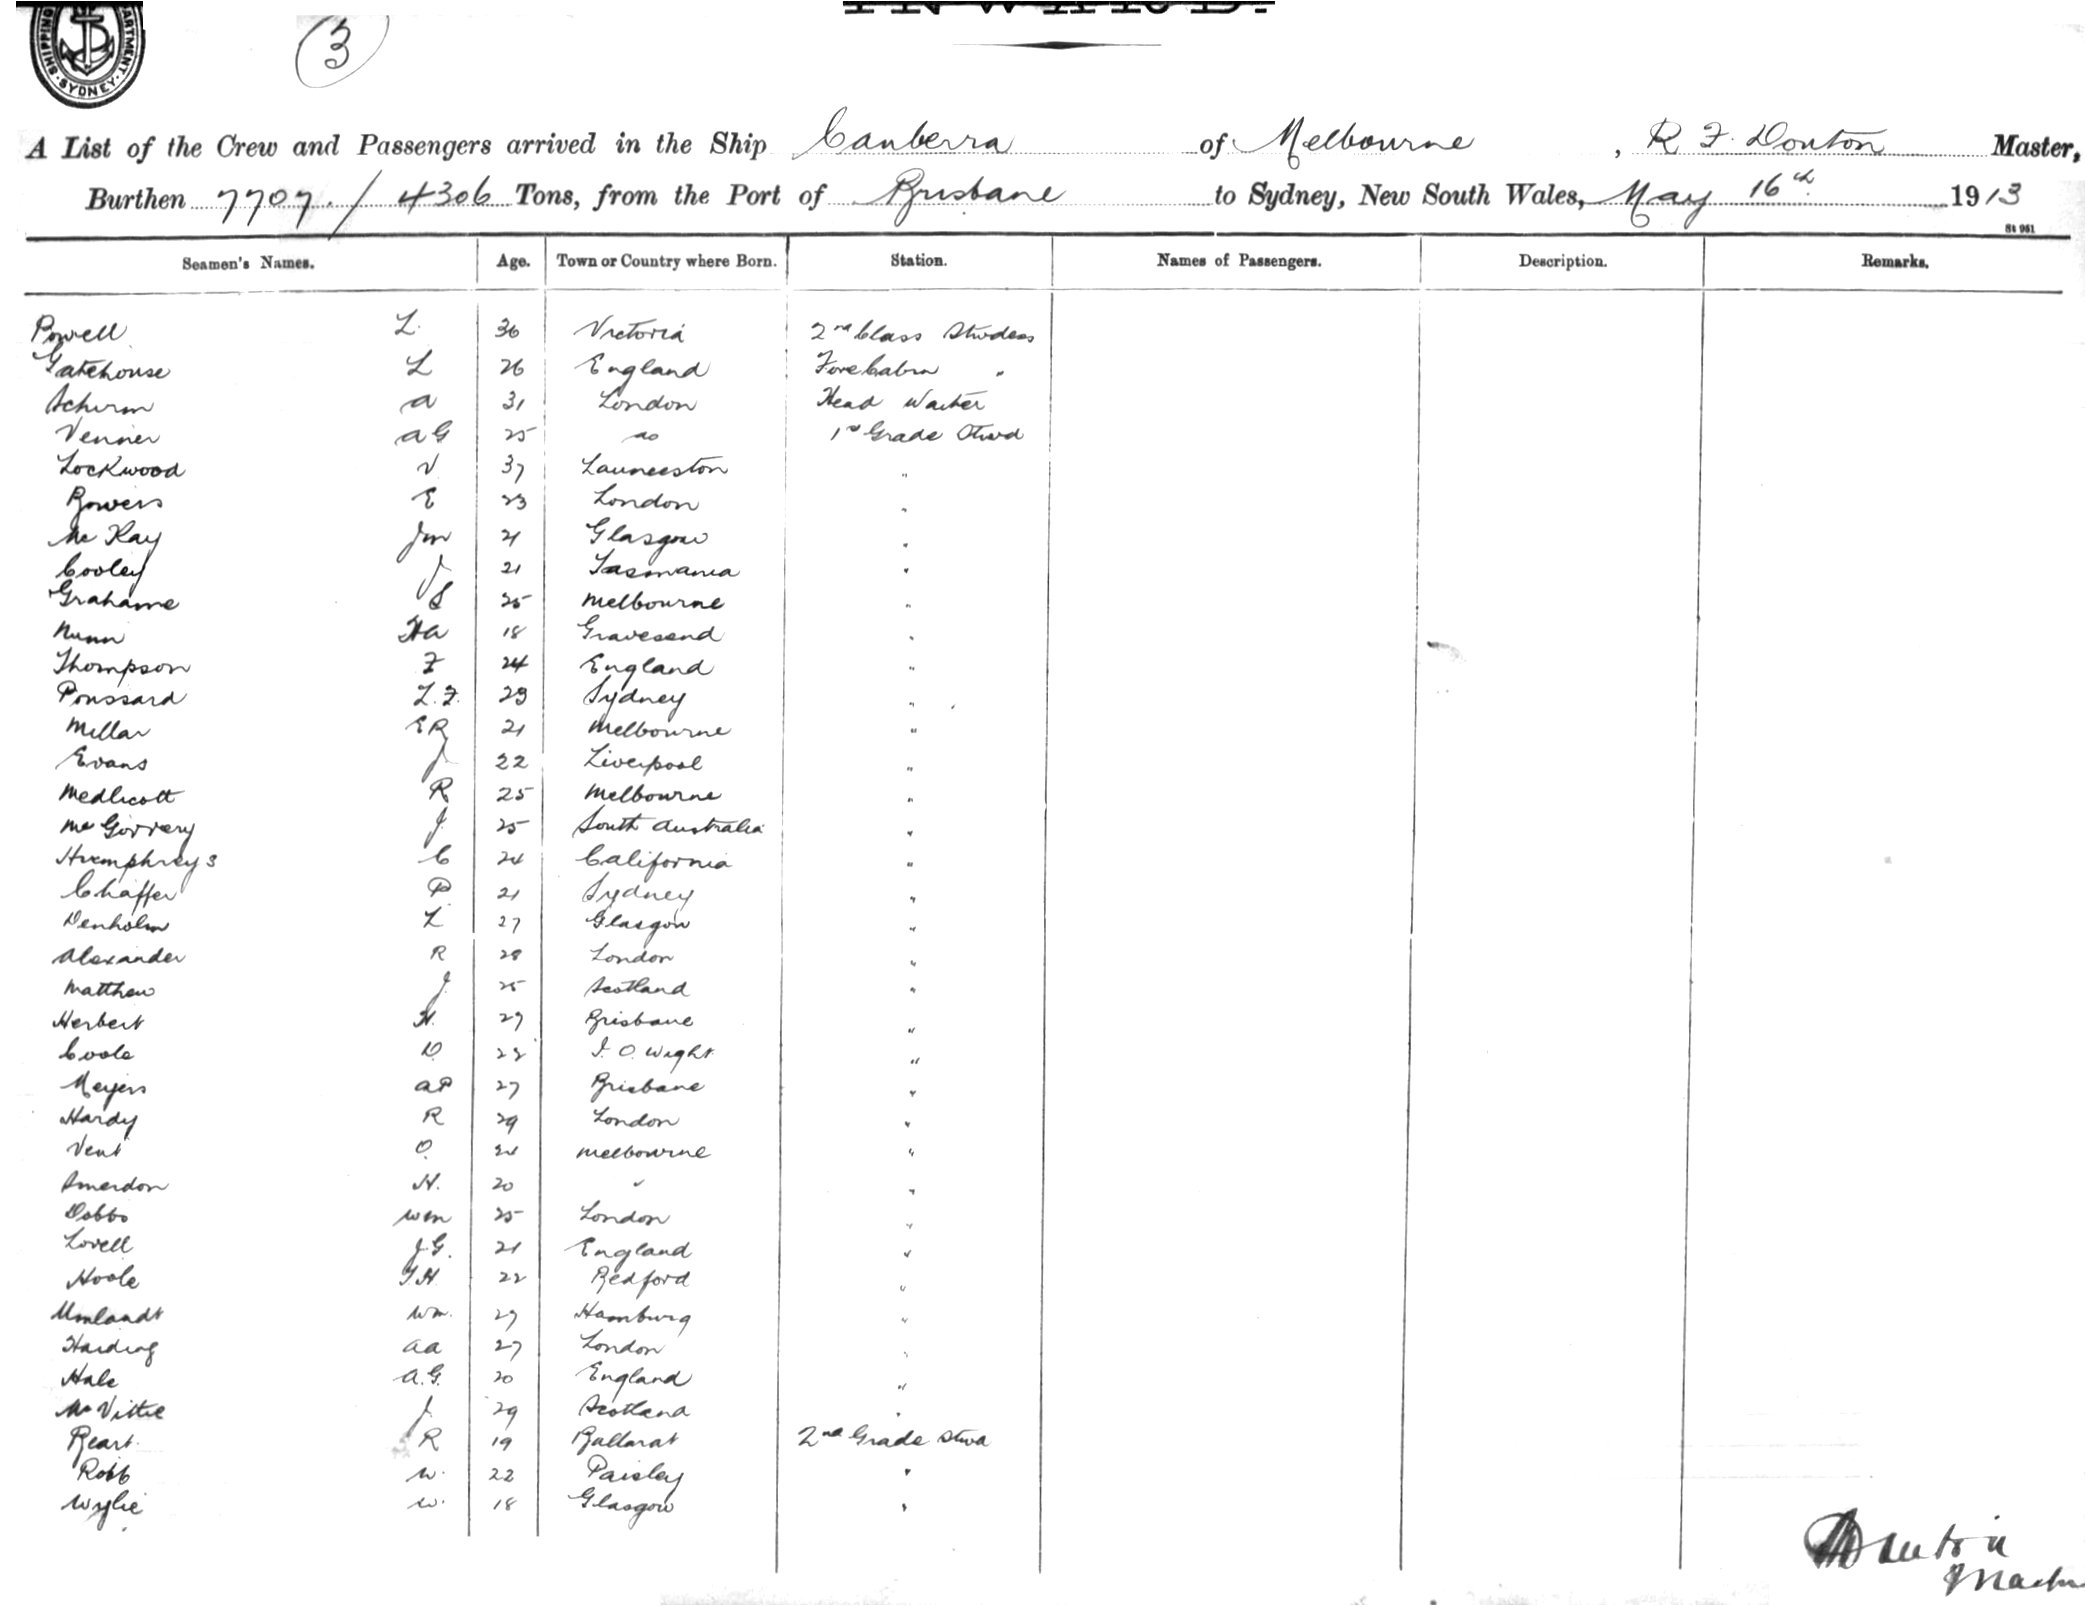 SHIPPING DEPARTMENT SYDNEY
3
INWARD.
A List of the Crew and Passengers arrived in the Ship Canberra of Melbourne, R F. Douton Master,
Burthen 7707./4306 Tons, from the Port of Brisbane to Sydney, New South Wales, May 16th 1913
St 961
Seamen's Names. Age. Town or Country where Born. Station. Names of Passengers. Description. Remarks.
Powell L. 36 Victoria 2nd Class
Gatehouse L 26 England Fore Cabin "
Schirm A 31 London Head Waiter
Venner A G 25 do 1st Grade Stwd
Lockwood V 37 Launceston "
Bowers E 23 London "
McKay Jn 21 Glasgow "
Cooley J 21 Tasmania "
Grahame S 25 Melbourne "
Nunn H a 18 Gravesend "
Thompson F 24 England "
Poussard L. F. 23 Sydney "
Millar E R 21 Melbourne "
Evans J 22 Liverpool "
Medlicott R 25 Melbourne "
McGorrery J. 25 South Australia "
Humphreys C 24 California "
Chaffer P 21 Sydney "
Denholm L 27 Glasgow "
Alexander R 28 London "
Matthew J. 25 Scotland "
Herbert H. 27 Brisbane "
Coole D. 22 I. O. Wight "
Meyers A P 27 Brisbane "
Hardy R 29 London "
Vent O. 21 Melbourne "
Smerdon H. 20 " "
Dobbs Wm 25 London "
Lovell J G. 21 England "
Hoole T H. 22 Bedford "
Umlandt Wm. 27 Hamburg "
Harding A A 27 London "
Hale A. G. 20 England "
McVittie J. 29 Scotland "
Beart R 19 Ballarat 2nd Grade Stwd
Robb W. 22 Paisley "
Wylie W. 18 Glasgow "
Douton
Master